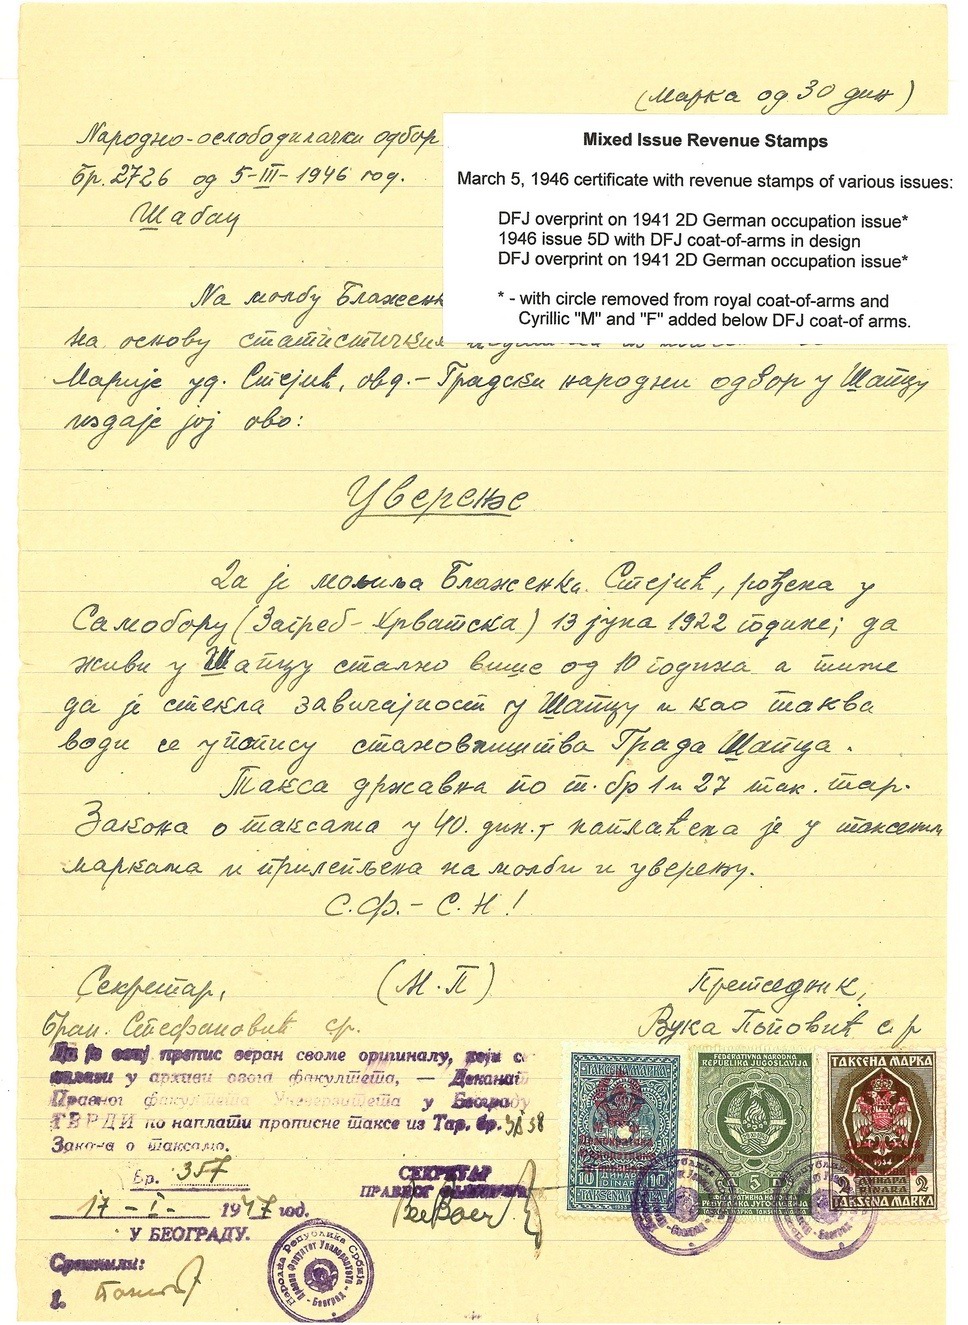 (Марка од 30 дин)
Народно-ослободилачки одбор
бр. 2726 од 5-III-1946 год.
Шабац
Mixed Issue Revenue Stamps
March 5, 1946 certificate with revenue stamps of various issues:
DFJ overprint on 1941 2D German occupation issue*
1946 issue 5D with DFJ coat-of-arms in design
DFJ overprint on 1941 2D German occupation issue*
* - with circle removed from royal coat-of-arms and
Cyrillic "M" and "F" added below DFJ coat-of arms.
На молбу Блажен
на основу статистичких
Марије уд. Стејић, овд. - Градски народни одбор у Шапцу
издаје јој ово:
Уверење
Да је молиља Блаженка Стејић, рођена у
Самобору (Загреб - Хрватска) 13 јуна 1922 године; да
живи у Шапцу стално више од 10 година а тиме
да је стекла завичајност у Шапцу и као таква
води се у попису становништва Града Шапца.
Такса државна по т. бр 1 и 27 так. тар.
Закона о таксама у 40. дин. наплаћена је у таксеним
маркама и прилепљена на молби и уверењу.
С.Ф. - С.Н!
Секретар, (М.П) Претседник,
Бран. Стефановић с.р. Вука Поповић с р
Да је овај препис веран своме оригиналу, који се
налази у архиви овога факултета, — Деканат
Правног факултета Универзитета у Београду
ТВРДИ по наплати прописне таксе из Тар. бр.
Закона о таксама.
Бр. 357
17 - I - 1947 год.
У БЕОГРАДУ.
СЕКРЕТАР
ПРАВНОГ ФАКУЛТЕТА
Сравнили:
1.
Народна Република Србија
Правни Факултет Универзитета
Београд
ТАКСЕНА МАРКА
Демократска
Федеративна
Југославија
10 ДИНАРА DINARA 10
TAKSENA MARKA
FEDERATIVNA NARODNA
REPUBLIKA JUGOSLAVIJA
5 Д
ФЕДЕРАТИВНА НАРОДНА
РЕПУБЛИКА ЈУГОСЛАВИЈА
ТАКСЕНА МАРКА
1934
2 ДИНАРА DINARA 2
TAKSENA MARKA